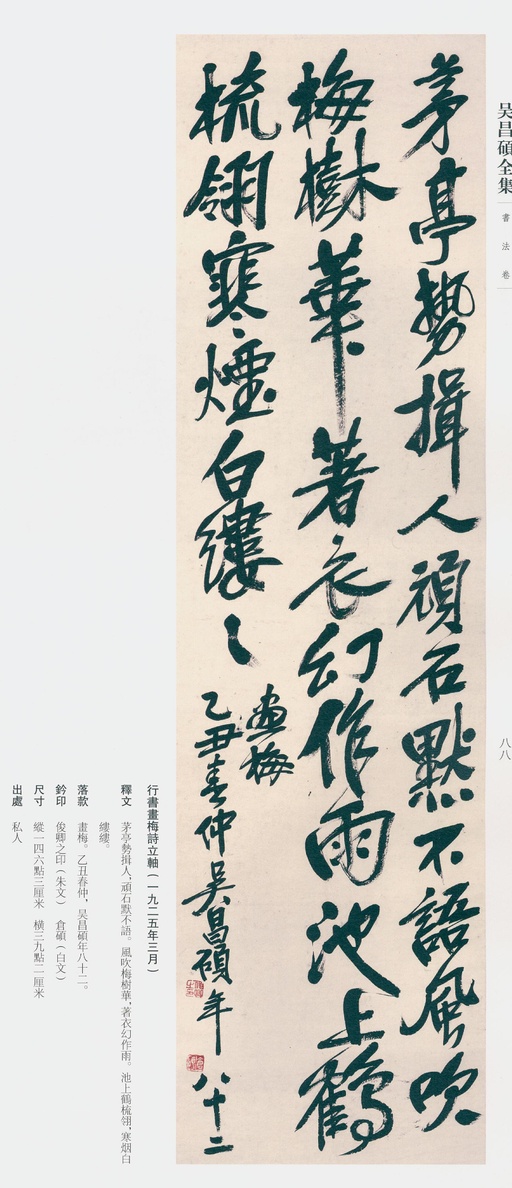 吴昌碩全集
書法卷
八八
茅亭勢揖人頑石默不語風吹
梅樹華著衣幻作雨池上鶴
梳翎寒煙白縷〻
畫梅
乙丑春仲吳昌碩年八十二
行書畫梅詩立軸(一九二五年三月)
釋文 茅亭勢揖人,頑石默不語。風吹梅樹華,著衣幻作雨。池上鶴梳翎,寒烟白
縷縷。
落款 畫梅。乙丑春仲,吴昌碩年八十二。
鈐印 俊卿之印(朱文) 倉碩(白文)
尺寸 縱一四六點三厘米 橫三九點二厘米
出處 私人